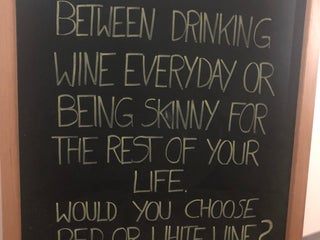 BETWEEN DRINKING
WINE EVERYDAY OR
BEING SKINNY FOR
THE REST OF YOUR
LIFE.
WOULD YOU CHOOSE
RED OR WHITE WINE?